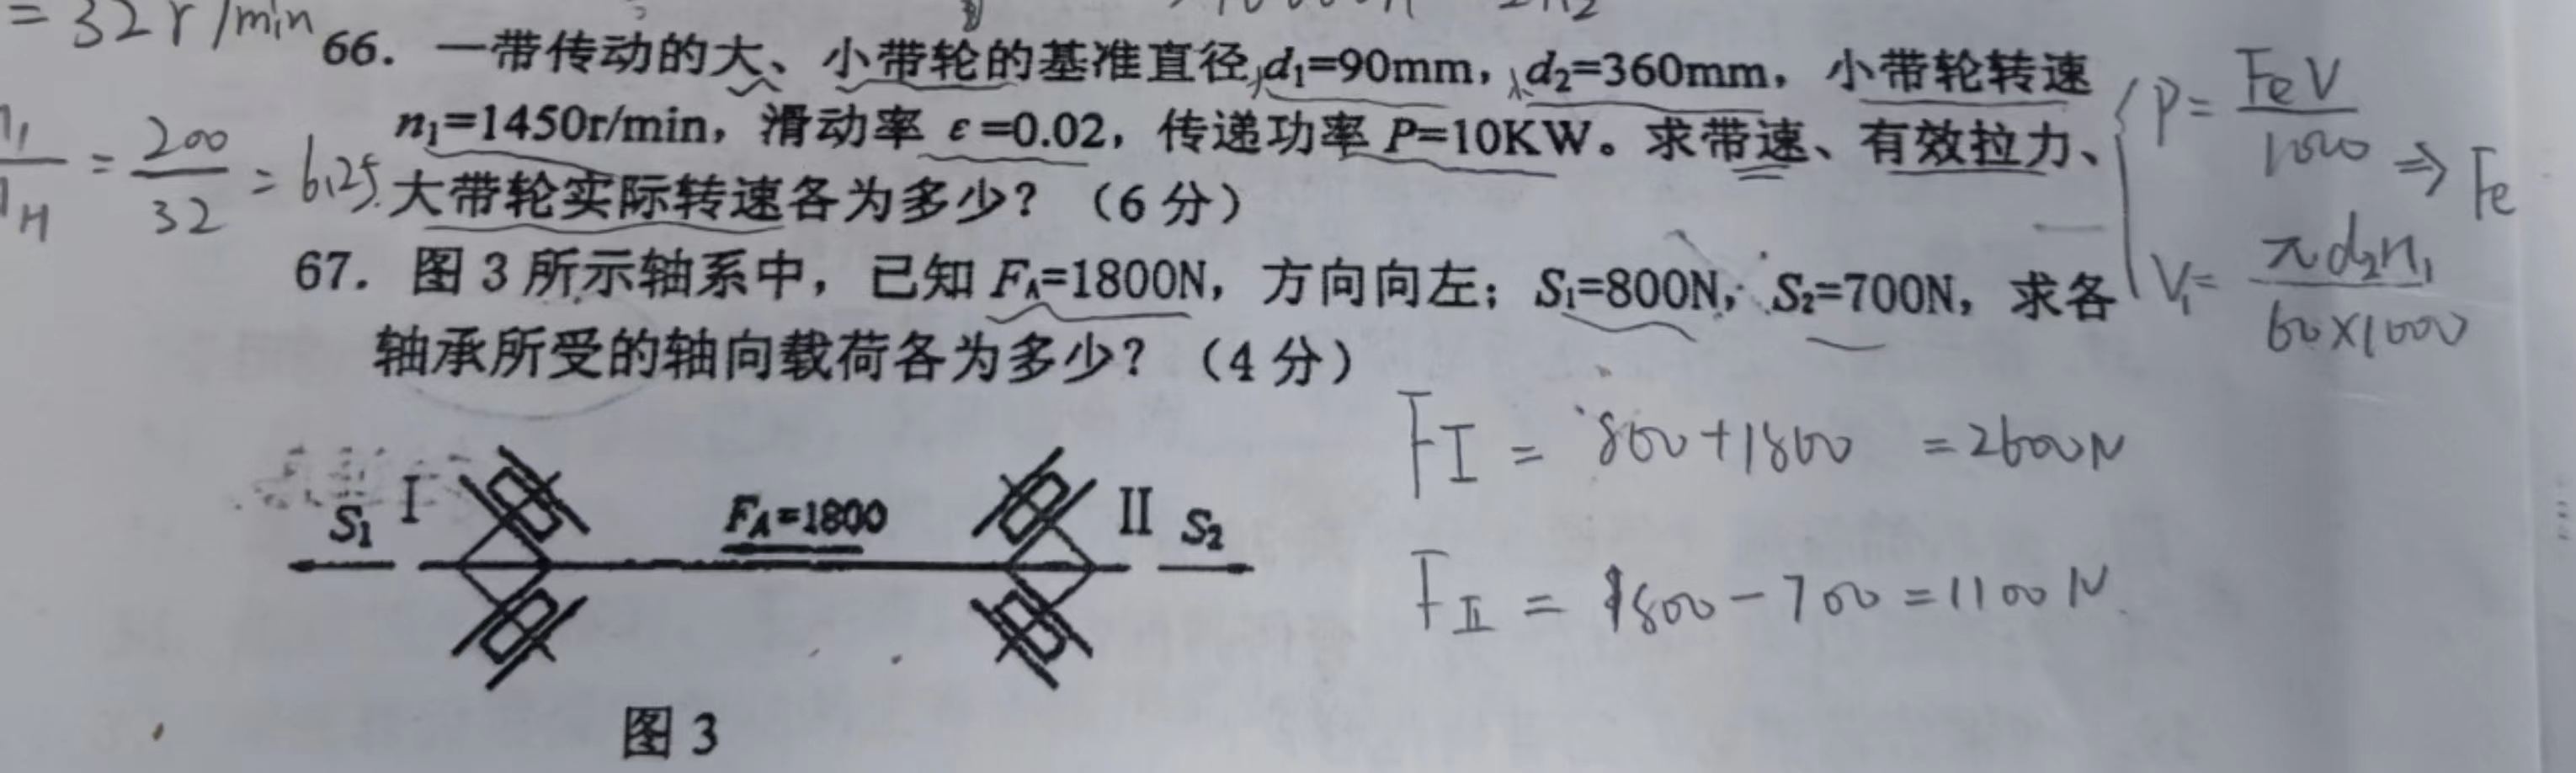 = 32 r/min
66. 一带传动的大、小带轮的基准直径 d₁=90mm, d₂=360mm, 小带轮转速
n₁=1450r/min, 滑动率 ε=0.02, 传递功率 P=10KW。求带速、有效拉力、
大带轮实际转速各为多少?(6 分)
= 200/32 = 6.25.
P = FeV/1000 ⇒ Fe
V₁ = πd₂n₁/60×1000
67. 图 3 所示轴系中, 已知 FA=1800N, 方向向左; S₁=800N, S₂=700N, 求各
轴承所受的轴向载荷各为多少?(4 分)
FⅠ = 800+1800 = 2600N
FⅡ = 1800-700=1100N.
S₁ I FA=1800 II S₂
图 3